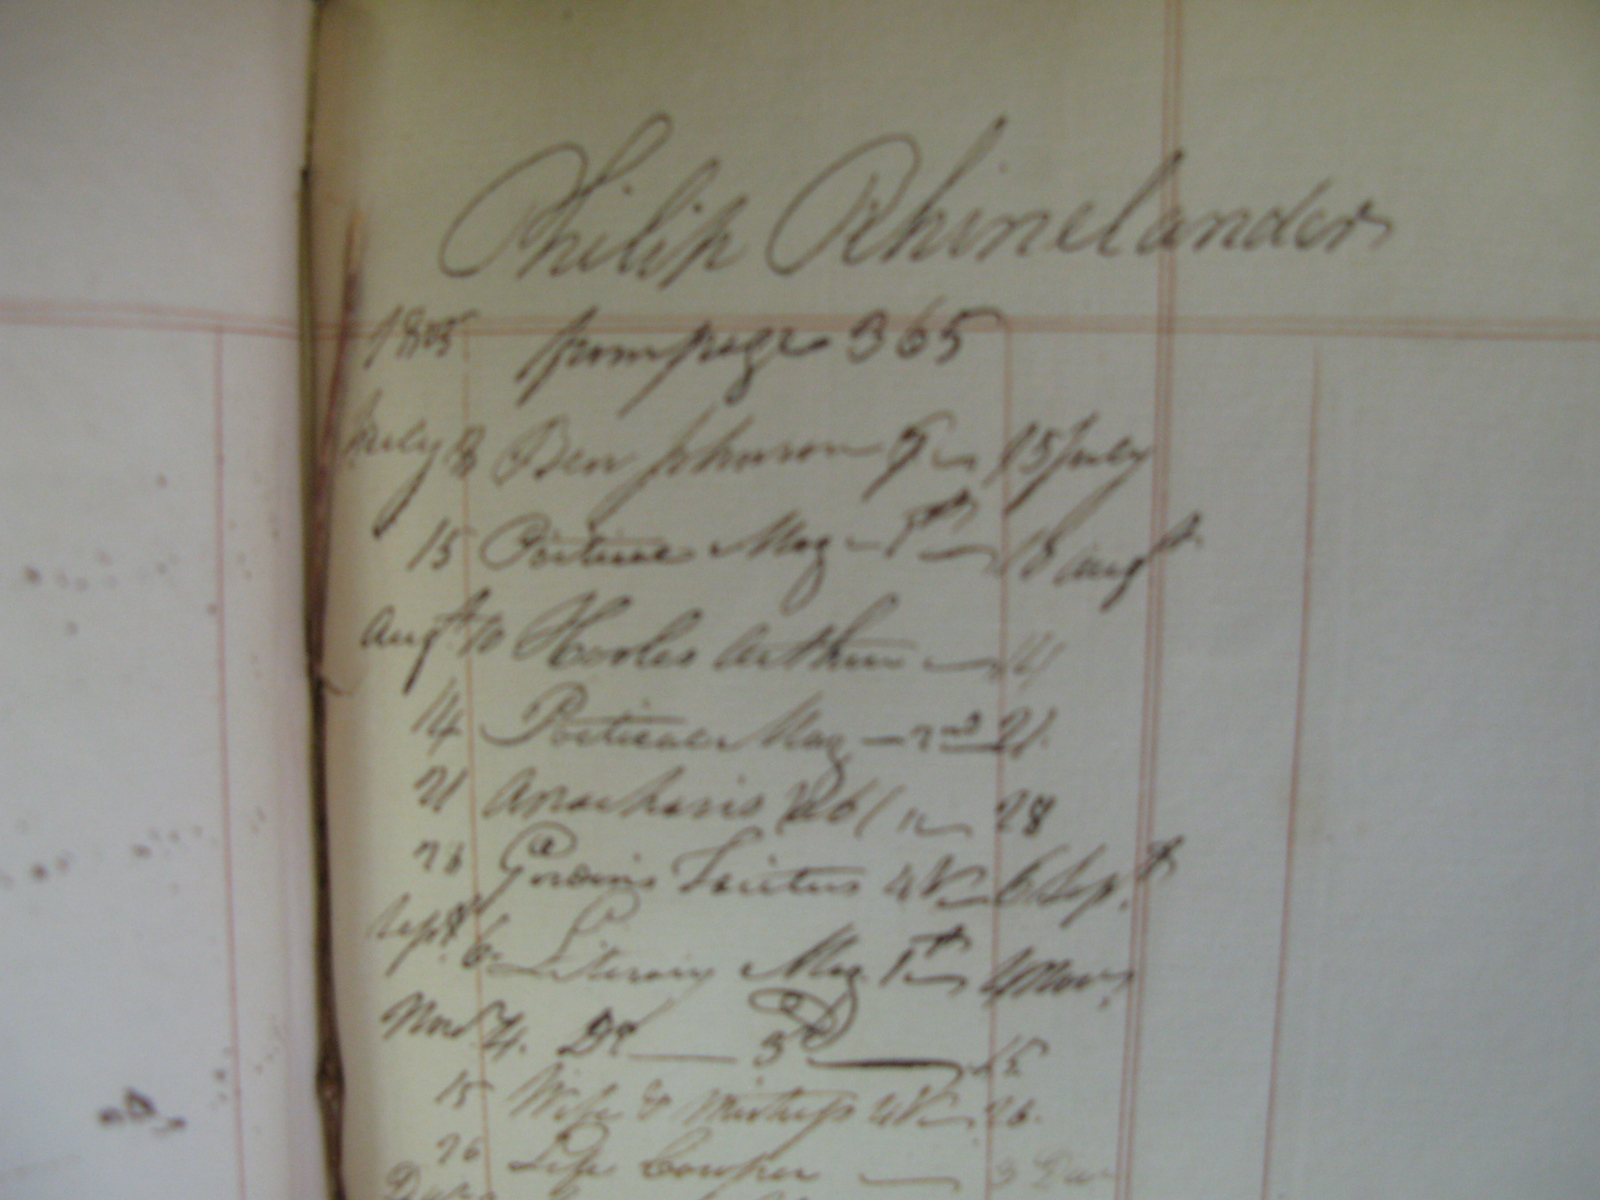 Philip Rhinelander
1805 from page 365
July 8 Ben Johnson 15 July
15 Poetical Mag - 1st 18 Augt
Augt 10 Hooles 14
14 Poetical Mag - 2nd 21
21 Anacharsis Vol 1 28
26 Gordons Tacitus 4 V 6 Sept
Sept 6 Literary Mag 1st 4 Nov
Nov 4. Do 3d 15
15 Wife & Mistress 4 V 26.
26 Life Cowper 3 Dec
Decr